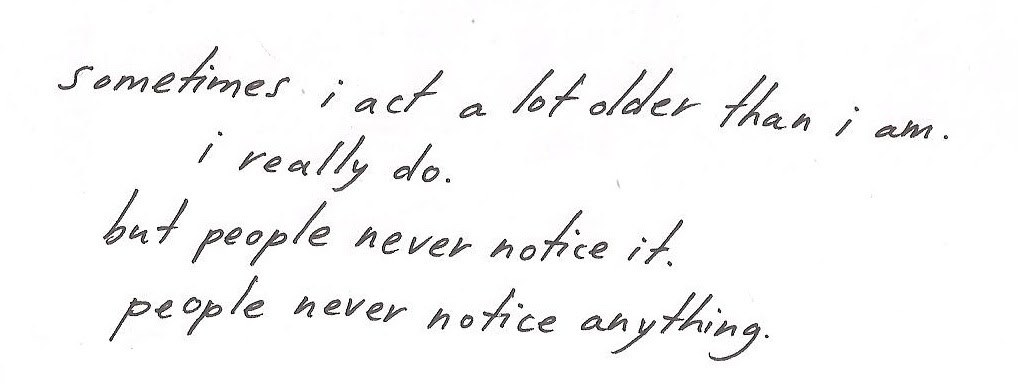 sometimes i act a lot older than i am.
i really do.
but people never notice it.
people never notice anything.